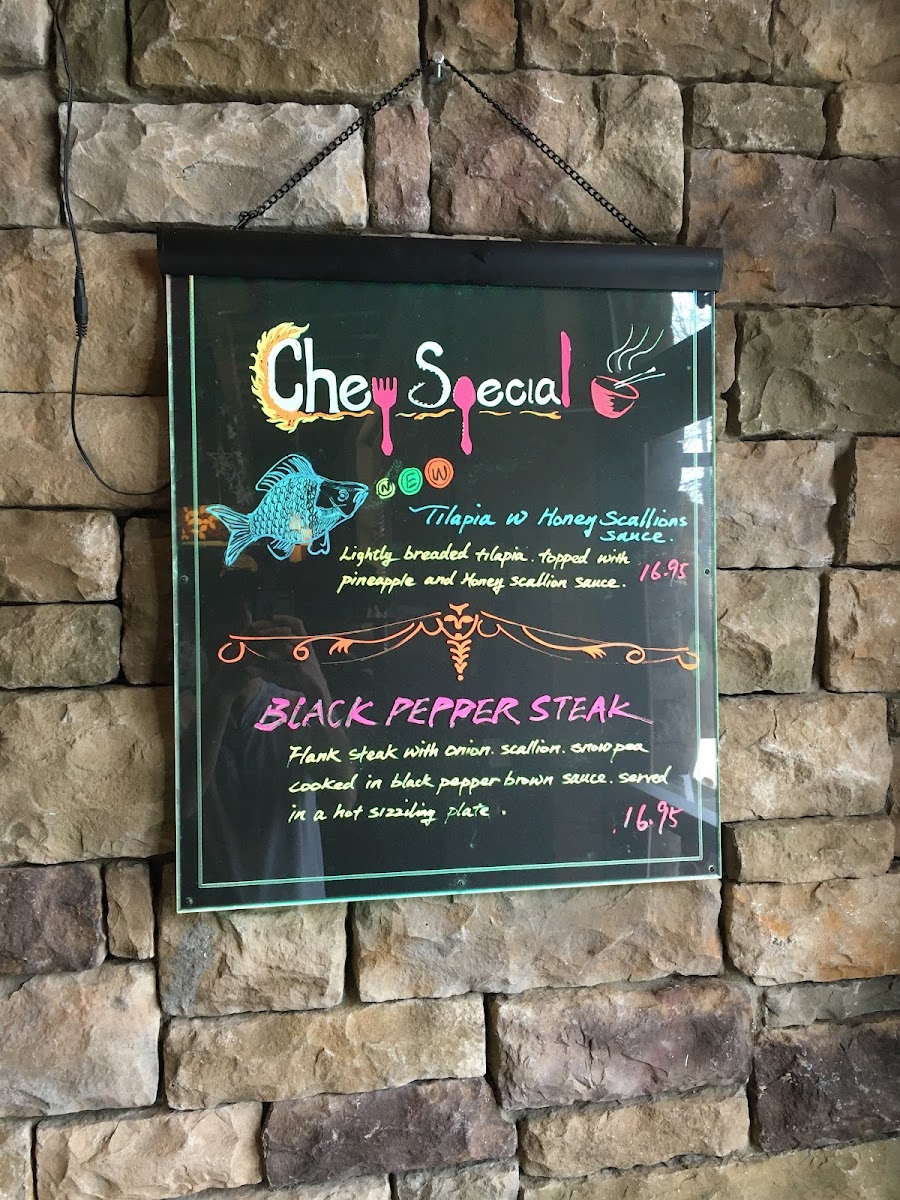 Chef Special
NEW
Tilapia w Honey Scallions
sauce.
Lightly breaded tilapia. topped with
pineapple and Honey scallion sauce.
16.95
BLACK PEPPER STEAK
Flank steak with onion. scallion. snow pea
cooked in black pepper brown sauce. served
in a hot sizziling plate.
.16.95